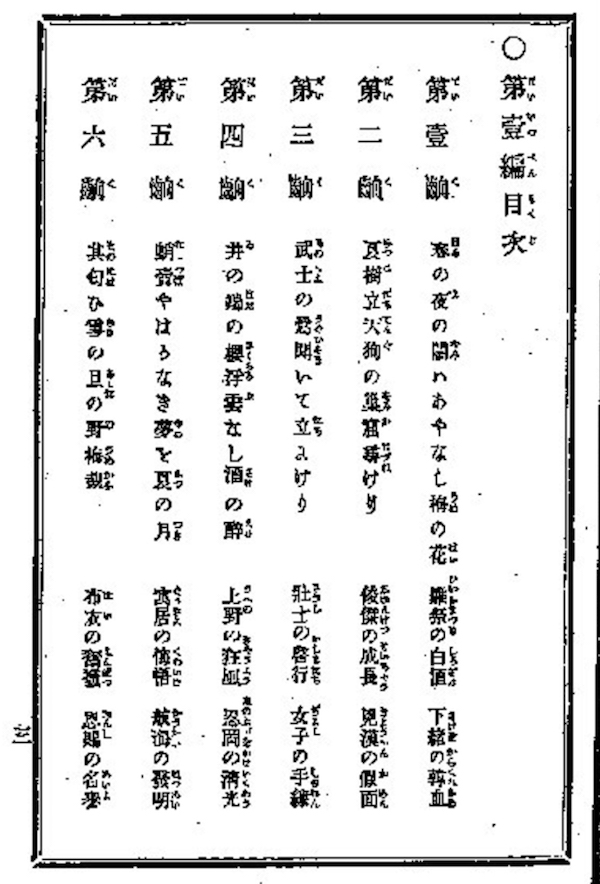 ○第壹編目次
第壹齣 春の夜の闇ハあやなし梅の花 雛祭の白酒 下緒の韓血
第二齣 夏樹立天狗の巣窟尋けり 俊傑の成長 兇漢の假面
第三齣 武士の鶯聞いて立にけり 壯士の啓行 女子の手練
第四齣 井の端の櫻浮雲なし酒の醉 上野の狂風 忍岡の淸光
第五齣 蛸壺やはるなき夢を夏の月 寓居の悔悟 航海の發明
第六齣 其匂ひ雪の旦の野梅哉 布衣の奮發 恩賜の名譽
三